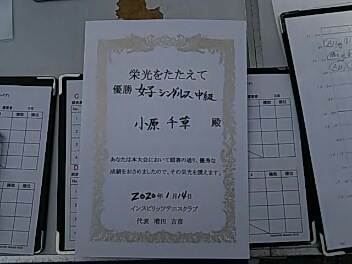 栄光をたたえて
優勝 女子シングルス中級
小原 千草 殿
あなたは本大会において頭書の通り、優秀な
成績をおさめましたので、その栄光を讃えます。
2020年1月14日
インスピリッツテニスクラブ
代表 増田 吉彦